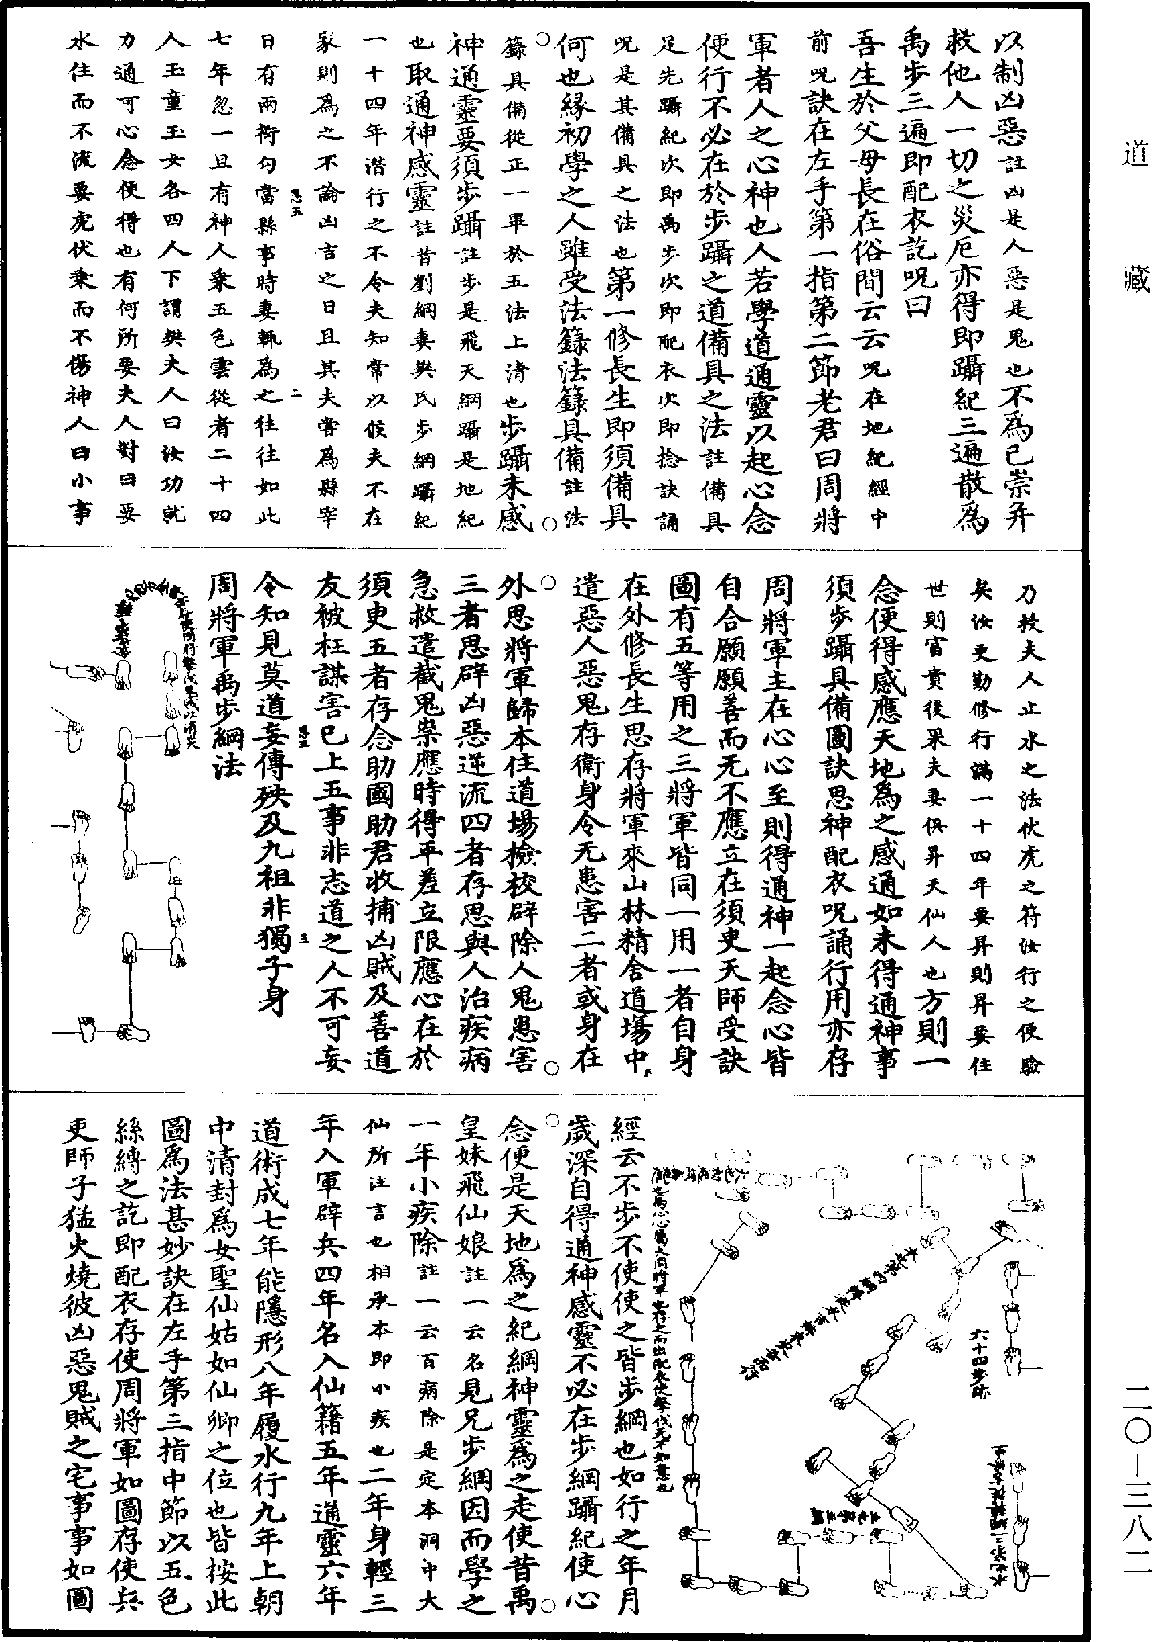 道藏
以制凶惡註凶是人惡是鬼也不為已崇并
救他人一切之災厄亦得即躡紀三遍散為
禹步三遍即配衣訖呪曰
吾生於父母長在俗間云云呪在地紀經中
前呪訣在左手第一指第二節老君曰周將
軍者人之心神也人若學道通靈以起心念
便行不必在於步躡之道備具之法註備具
足先躡紀次即禹步次即配衣次即捻訣誦
呪是其備具之法也第一修長生即須備具
何也緣初學之人雖受法籙法籙具備註法
籙具備從正一畢於五法上清也步躡未感
神通靈要須步躡註步是飛天綱躡是地紀
也取通神感靈註昔劉綱妻樊氏步綱躡紀
一十四年潛行之不令夫知常以候夫不在
家則為之不論凶吉之日且其夫嘗為縣宰
日有兩衙勾當縣事時妻輒為之往往如此
七年忽一旦有神人乘五色雲從者二十四
人玉童玉女各四人下謂樊夫人曰汝功就
力通可心念便得也有何所要夫人對曰要
水住而不流要虎伏乘而不傷神人曰小事
乃授夫人止水之法伏虎之符汝行之便驗
矣汝更勤修行滿一十四年要昇則昇要住
世則富貴後果夫妻俱昇天仙人也方則一
念便得感應天地為之感通如未得通神事
須步躡具備圖訣思神配衣呪誦行用亦存
周將軍主在心心至則得通神一起念心皆
自合願願善而无不應立在須吏天師受訣
圖有五等用之三將軍皆同一用一者自身
在外修長生思存將軍來山林精舍道場中
遣惡人惡鬼存衛身令无患害二者或身在
外思將軍歸本住道場撿校辟除人鬼患害
三者思辟凶惡逆流四者存思與人治疾病
急救遣截鬼祟應時得平差立限應心在於
須吏五者存念助國助君收捕凶賊及善道
友被枉謀害已上五事非志道之人不可妄
令知見莫道妄傳殃及九祖非獨子身
周將軍禹步綱法
六十四步跡
經云不步不使使之皆步綱也如行之年月
歲深自得通神感靈不必在步綱躡紀使心
念便是天地為之紀綱神靈為之走使昔禹
皇妹飛仙娘註一云名見兄步綱因而學之
一年小疾除註一云百病除是定本洞中大
仙所注言也相承本即小疾也二年身輕三
年入軍辟兵四年名入仙籍五年通靈六年
道術成七年能隱形八年履水行九年上朝
中清封為女聖仙姑如仙卿之位也皆按此
圖為法甚妙訣在左手第三指中節以五色
絲縛之訖即配衣存使周將軍如圖存使兵
吏師子猛火燒彼凶惡鬼賊之宅事事如圖
二〇—三八二